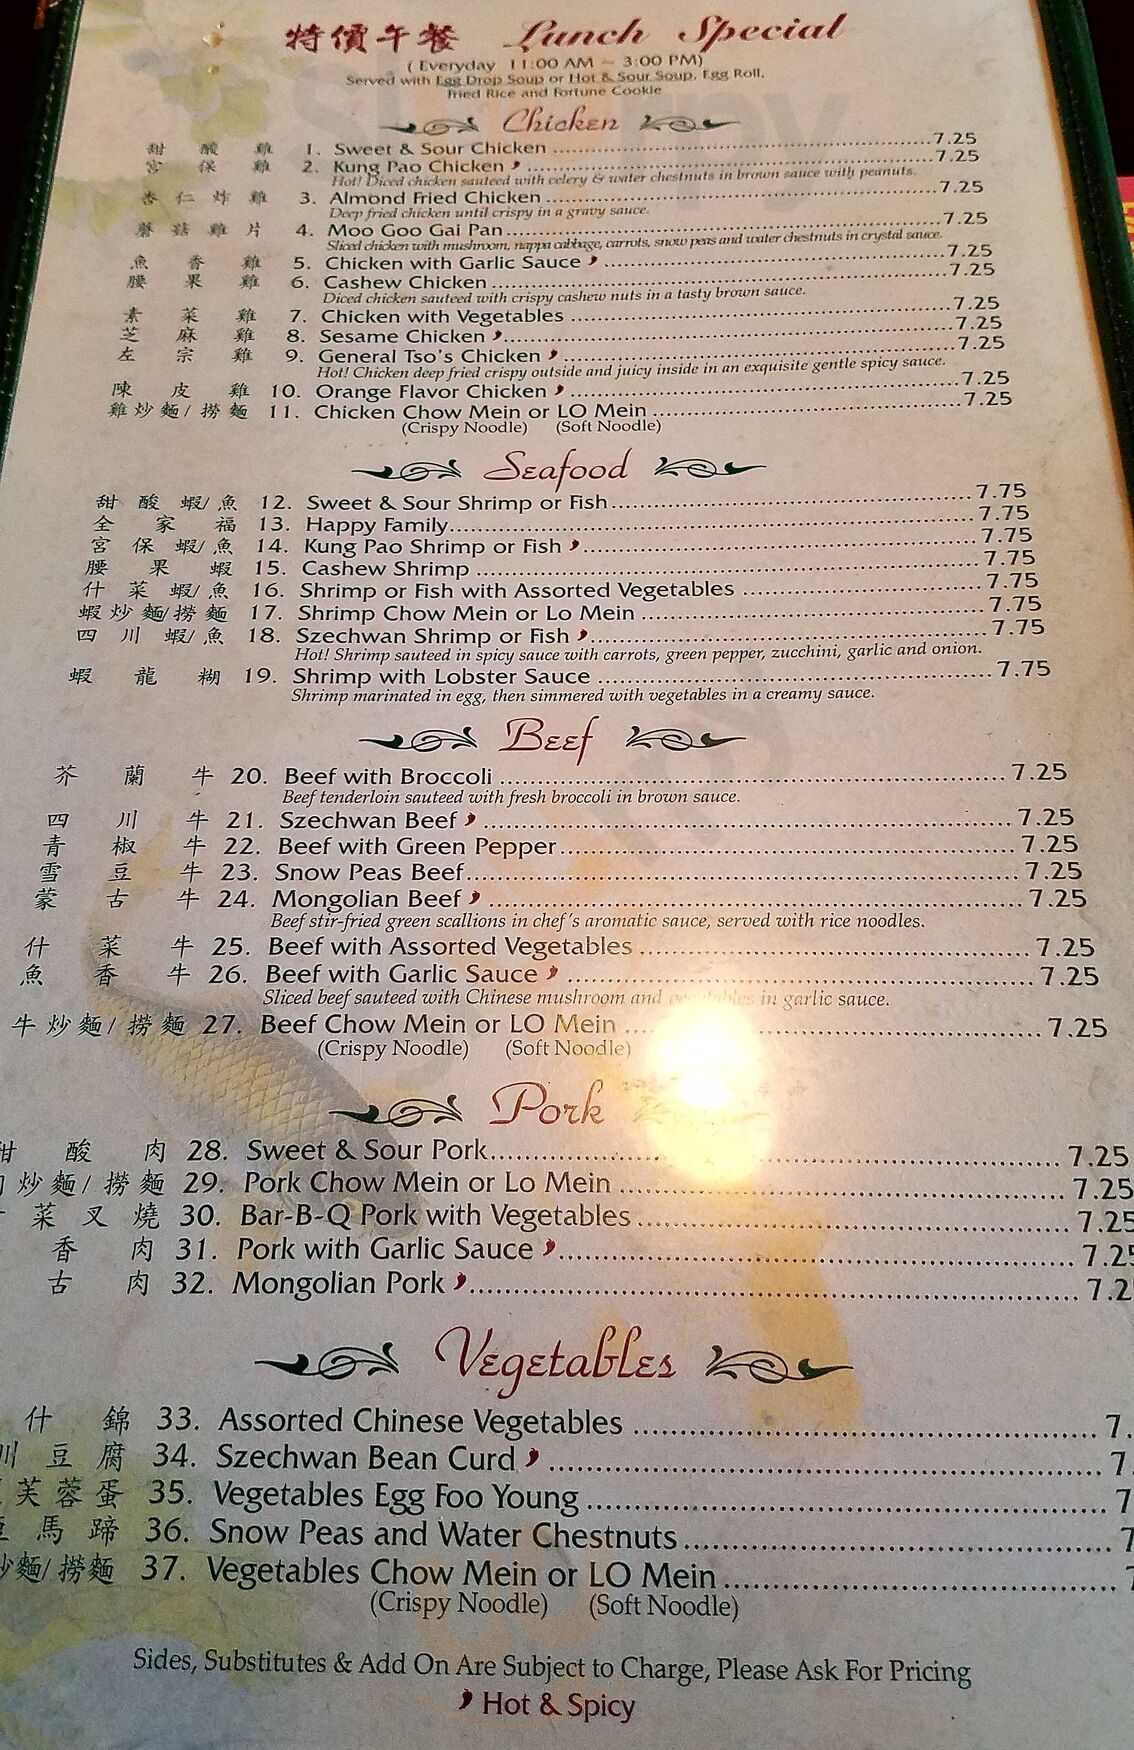 特價午餐 Lunch Special
( Everyday 11:00 AM ~ 3:00 PM)
Served with Egg Drop Soup or Hot & Sour Soup, Egg Roll,
Fried Rice and Fortune Cookie
Chicken
甜酸雞 1. Sweet & Sour Chicken 7.25
宮保雞 2. Kung Pao Chicken 7.25
Hot! Diced chicken sauteed with celery & water chestnuts in brown sauce with peanuts.
杏仁炸雞 3. Almond Fried Chicken 7.25
Deep fried chicken until crispy in a gravy sauce.
蘑菇雞片 4. Moo Goo Gai Pan 7.25
Sliced chicken with mushroom, nappa cabbage, carrots, snow peas and water chestnuts in crystal sauce.
魚香雞 5. Chicken with Garlic Sauce 7.25
腰果雞 6. Cashew Chicken 7.25
Diced chicken sauteed with crispy cashew nuts in a tasty brown sauce.
素菜雞 7. Chicken with Vegetables 7.25
芝麻雞 8. Sesame Chicken 7.25
左宗雞 9. General Tso's Chicken 7.25
Hot! Chicken deep fried crispy outside and juicy inside in an exquisite gentle spicy sauce.
陳皮雞 10. Orange Flavor Chicken 7.25
雞炒麵/撈麵 11. Chicken Chow Mein or LO Mein 7.25
(Crispy Noodle) (Soft Noodle)
Seafood
甜酸蝦/魚 12. Sweet & Sour Shrimp or Fish 7.75
全家福 13. Happy Family 7.75
宮保蝦/魚 14. Kung Pao Shrimp or Fish 7.75
腰果蝦 15. Cashew Shrimp 7.75
什菜蝦/魚 16. Shrimp or Fish with Assorted Vegetables 7.75
蝦炒麵/撈麵 17. Shrimp Chow Mein or Lo Mein 7.75
四川蝦/魚 18. Szechwan Shrimp or Fish 7.75
Hot! Shrimp sauteed in spicy sauce with carrots, green pepper, zucchini, garlic and onion.
蝦龍糊 19. Shrimp with Lobster Sauce 7.75
Shrimp marinated in egg, then simmered with vegetables in a creamy sauce.
Beef
芥蘭牛 20. Beef with Broccoli 7.25
Beef tenderloin sauteed with fresh broccoli in brown sauce.
四川牛 21. Szechwan Beef 7.25
青椒牛 22. Beef with Green Pepper 7.25
雪豆牛 23. Snow Peas Beef 7.25
蒙古牛 24. Mongolian Beef 7.25
Beef stir-fried green scallions in chef's aromatic sauce, served with rice noodles.
什菜牛 25. Beef with Assorted Vegetables 7.25
魚香牛 26. Beef with Garlic Sauce 7.25
Sliced beef sauteed with Chinese mushroom and vegetables in garlic sauce.
牛炒麵/撈麵 27. Beef Chow Mein or LO Mein 7.25
(Crispy Noodle) (Soft Noodle)
Pork
甜酸肉 28. Sweet & Sour Pork 7.25
炒麵/撈麵 29. Pork Chow Mein or Lo Mein 7.25
菜叉燒 30. Bar-B-Q Pork with Vegetables 7.25
香肉 31. Pork with Garlic Sauce 7.25
古肉 32. Mongolian Pork 7.2
Vegetables
什錦 33. Assorted Chinese Vegetables 7.
川豆腐 34. Szechwan Bean Curd 7.
芙蓉蛋 35. Vegetables Egg Foo Young 7
馬蹄 36. Snow Peas and Water Chestnuts 7
炒麵/撈麵 37. Vegetables Chow Mein or LO Mein
(Crispy Noodle) (Soft Noodle)
Sides, Substitutes & Add On Are Subject to Charge, Please Ask For Pricing
Hot & Spicy